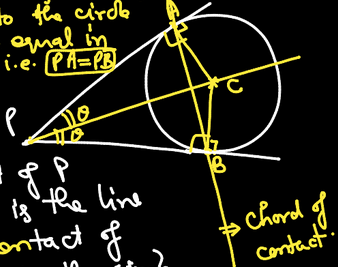 to the circle
equal in
i.e. PA = PB
A
P
θ
θ
C
B
of P
is the line
contact of
Chord of
contact.